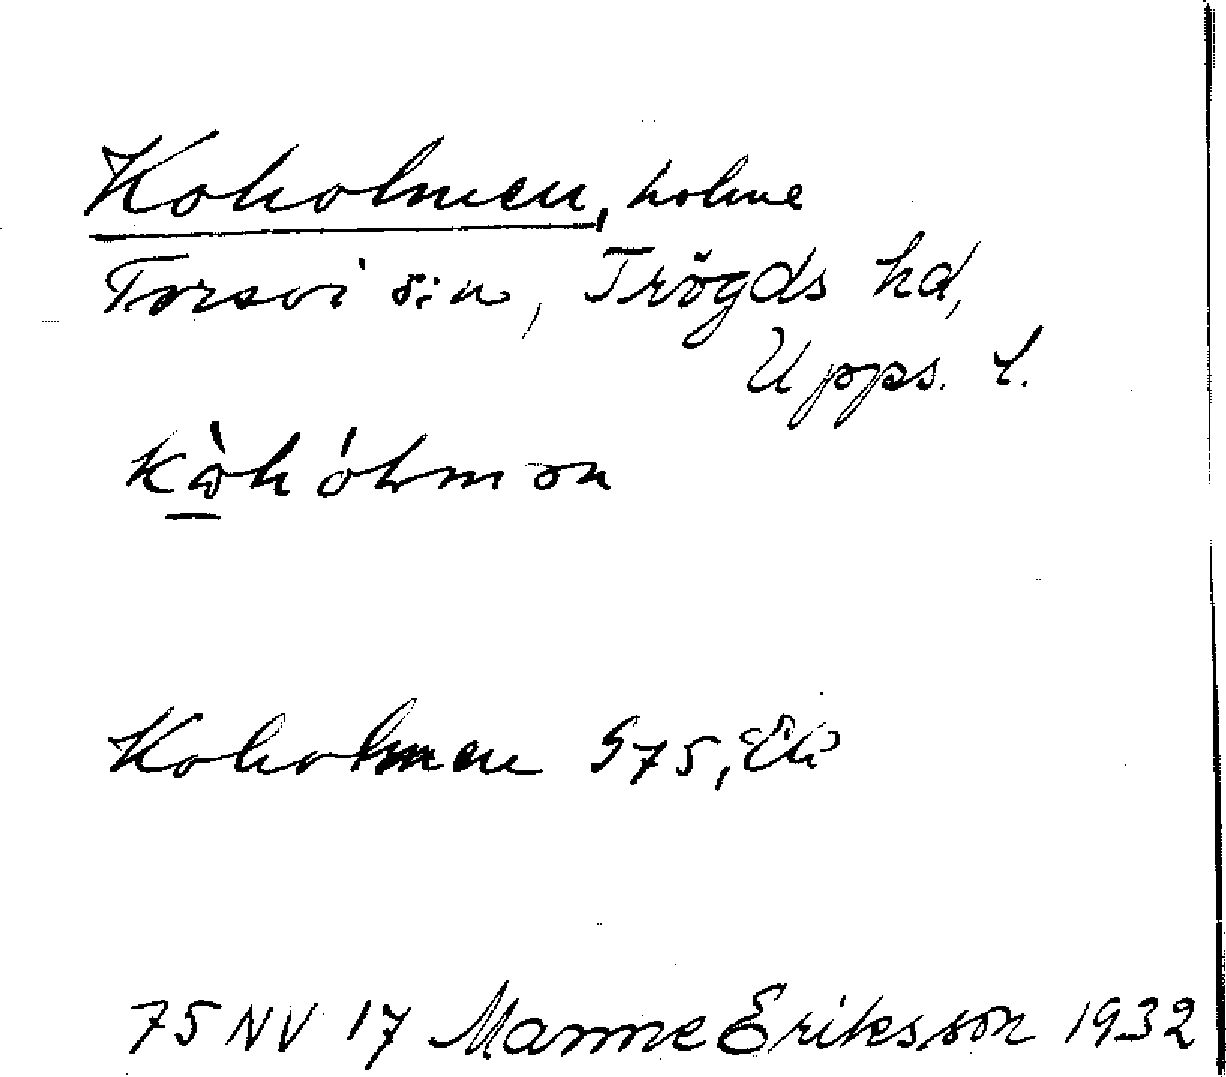 Koholmen, holme
Torsvi s:n, Trögds hd,
Upps. l.
kòhólmən
Koholmen S75, Ek
75 NV 17 Manne Eriksson 1932